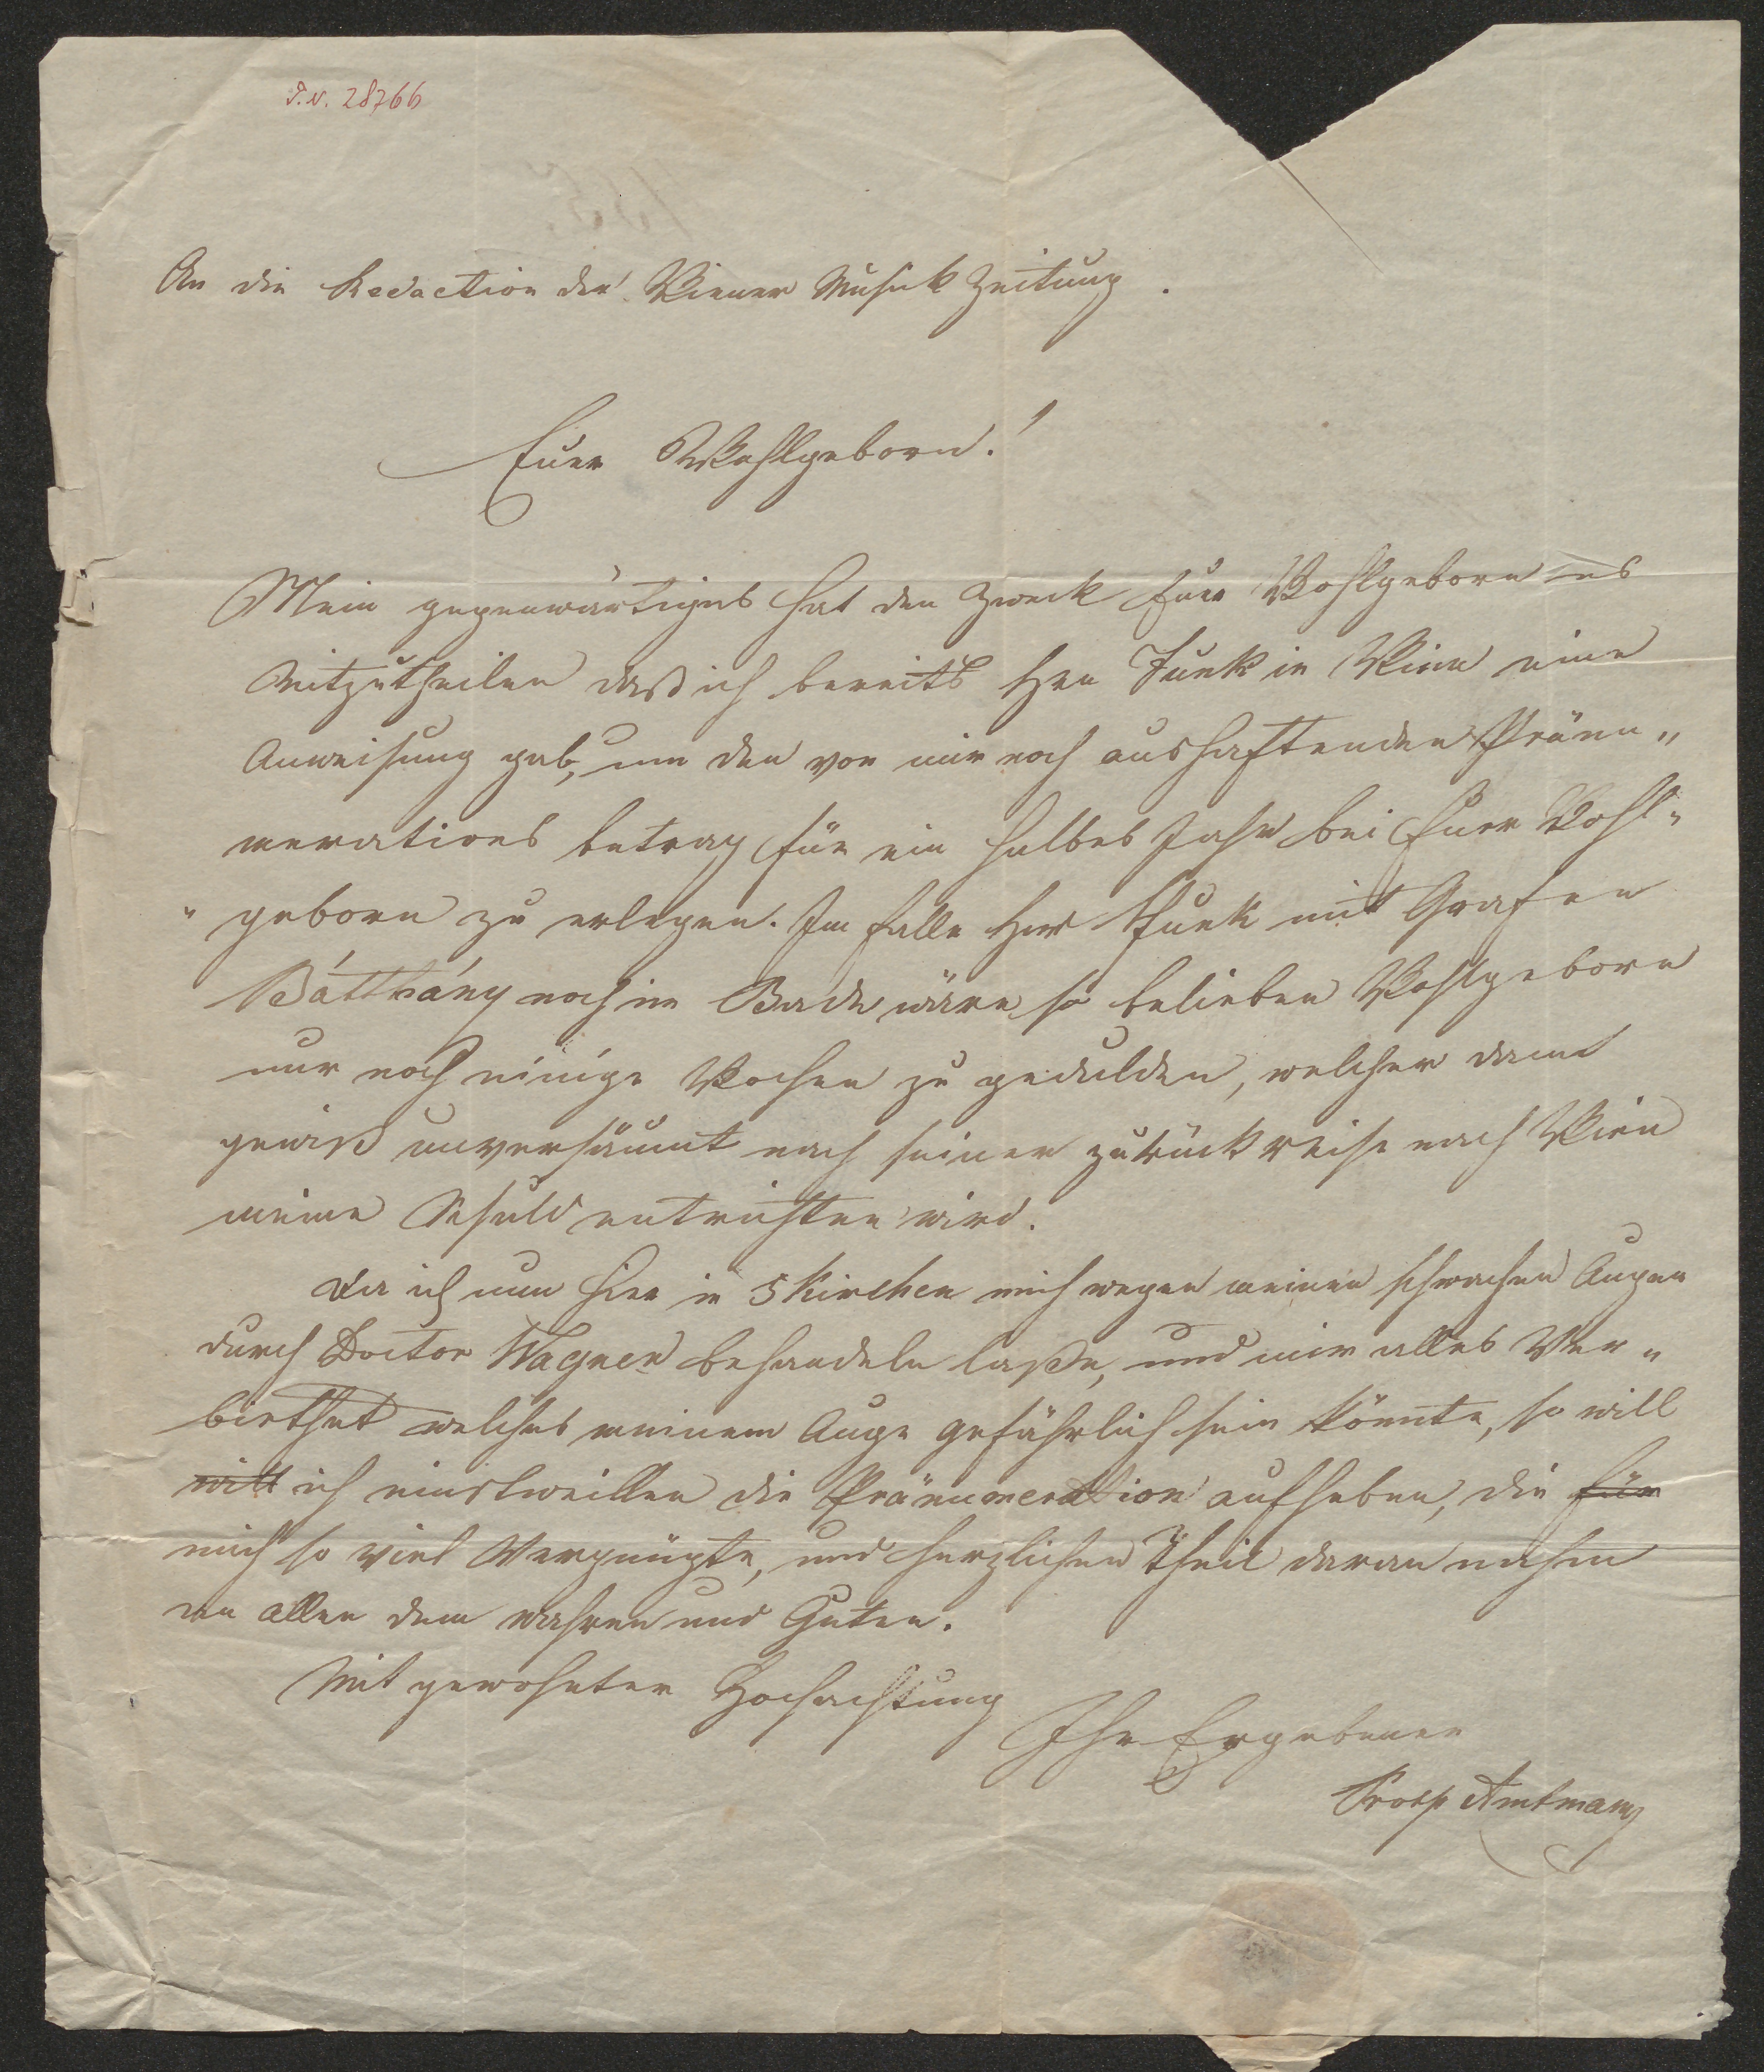 I.N. 28766
An die Redaction der Wiener Musik Zeitung.
Euer Wohlgeborn!
Mein gegenwärtiges hat den Zweck Euer Wohlgeborn es
Mitzutheilen daß ich bereits Hrn Funk in Wien eine
Anweisung gab, um den von mir noch aushaftenden Pränu„
merations betrag für ein halbes Jahr bei Euer Wohl„
„geborn zu erlegen. Im Falle Herr Funk mit Grafen
Bátthány noch im Bade wäre, so belieben Wohlgeborn
nur noch einige Wochen zu gedulden, welcher dann
gewiß unversäumt nach seiner zurückreise nach Wien
meine Schuld entrichten wird.
Da ich nun hier in 5kirchen mich wegen meinen schwachen Augen
durch Doctor Wagner behandeln laße, und mir alles Ver„
biethet welches meinem Auge gefährlich sein könnte, so will
will ich einstweillen die Pränumeration aufheben, die für
mich so viel Vergnügte, und herzlichen Theil daran nahm
an allen dem wahren und Guten.
Mit gewohnter Hochachtung
Ihr Ergebener
Prosp Amtmann